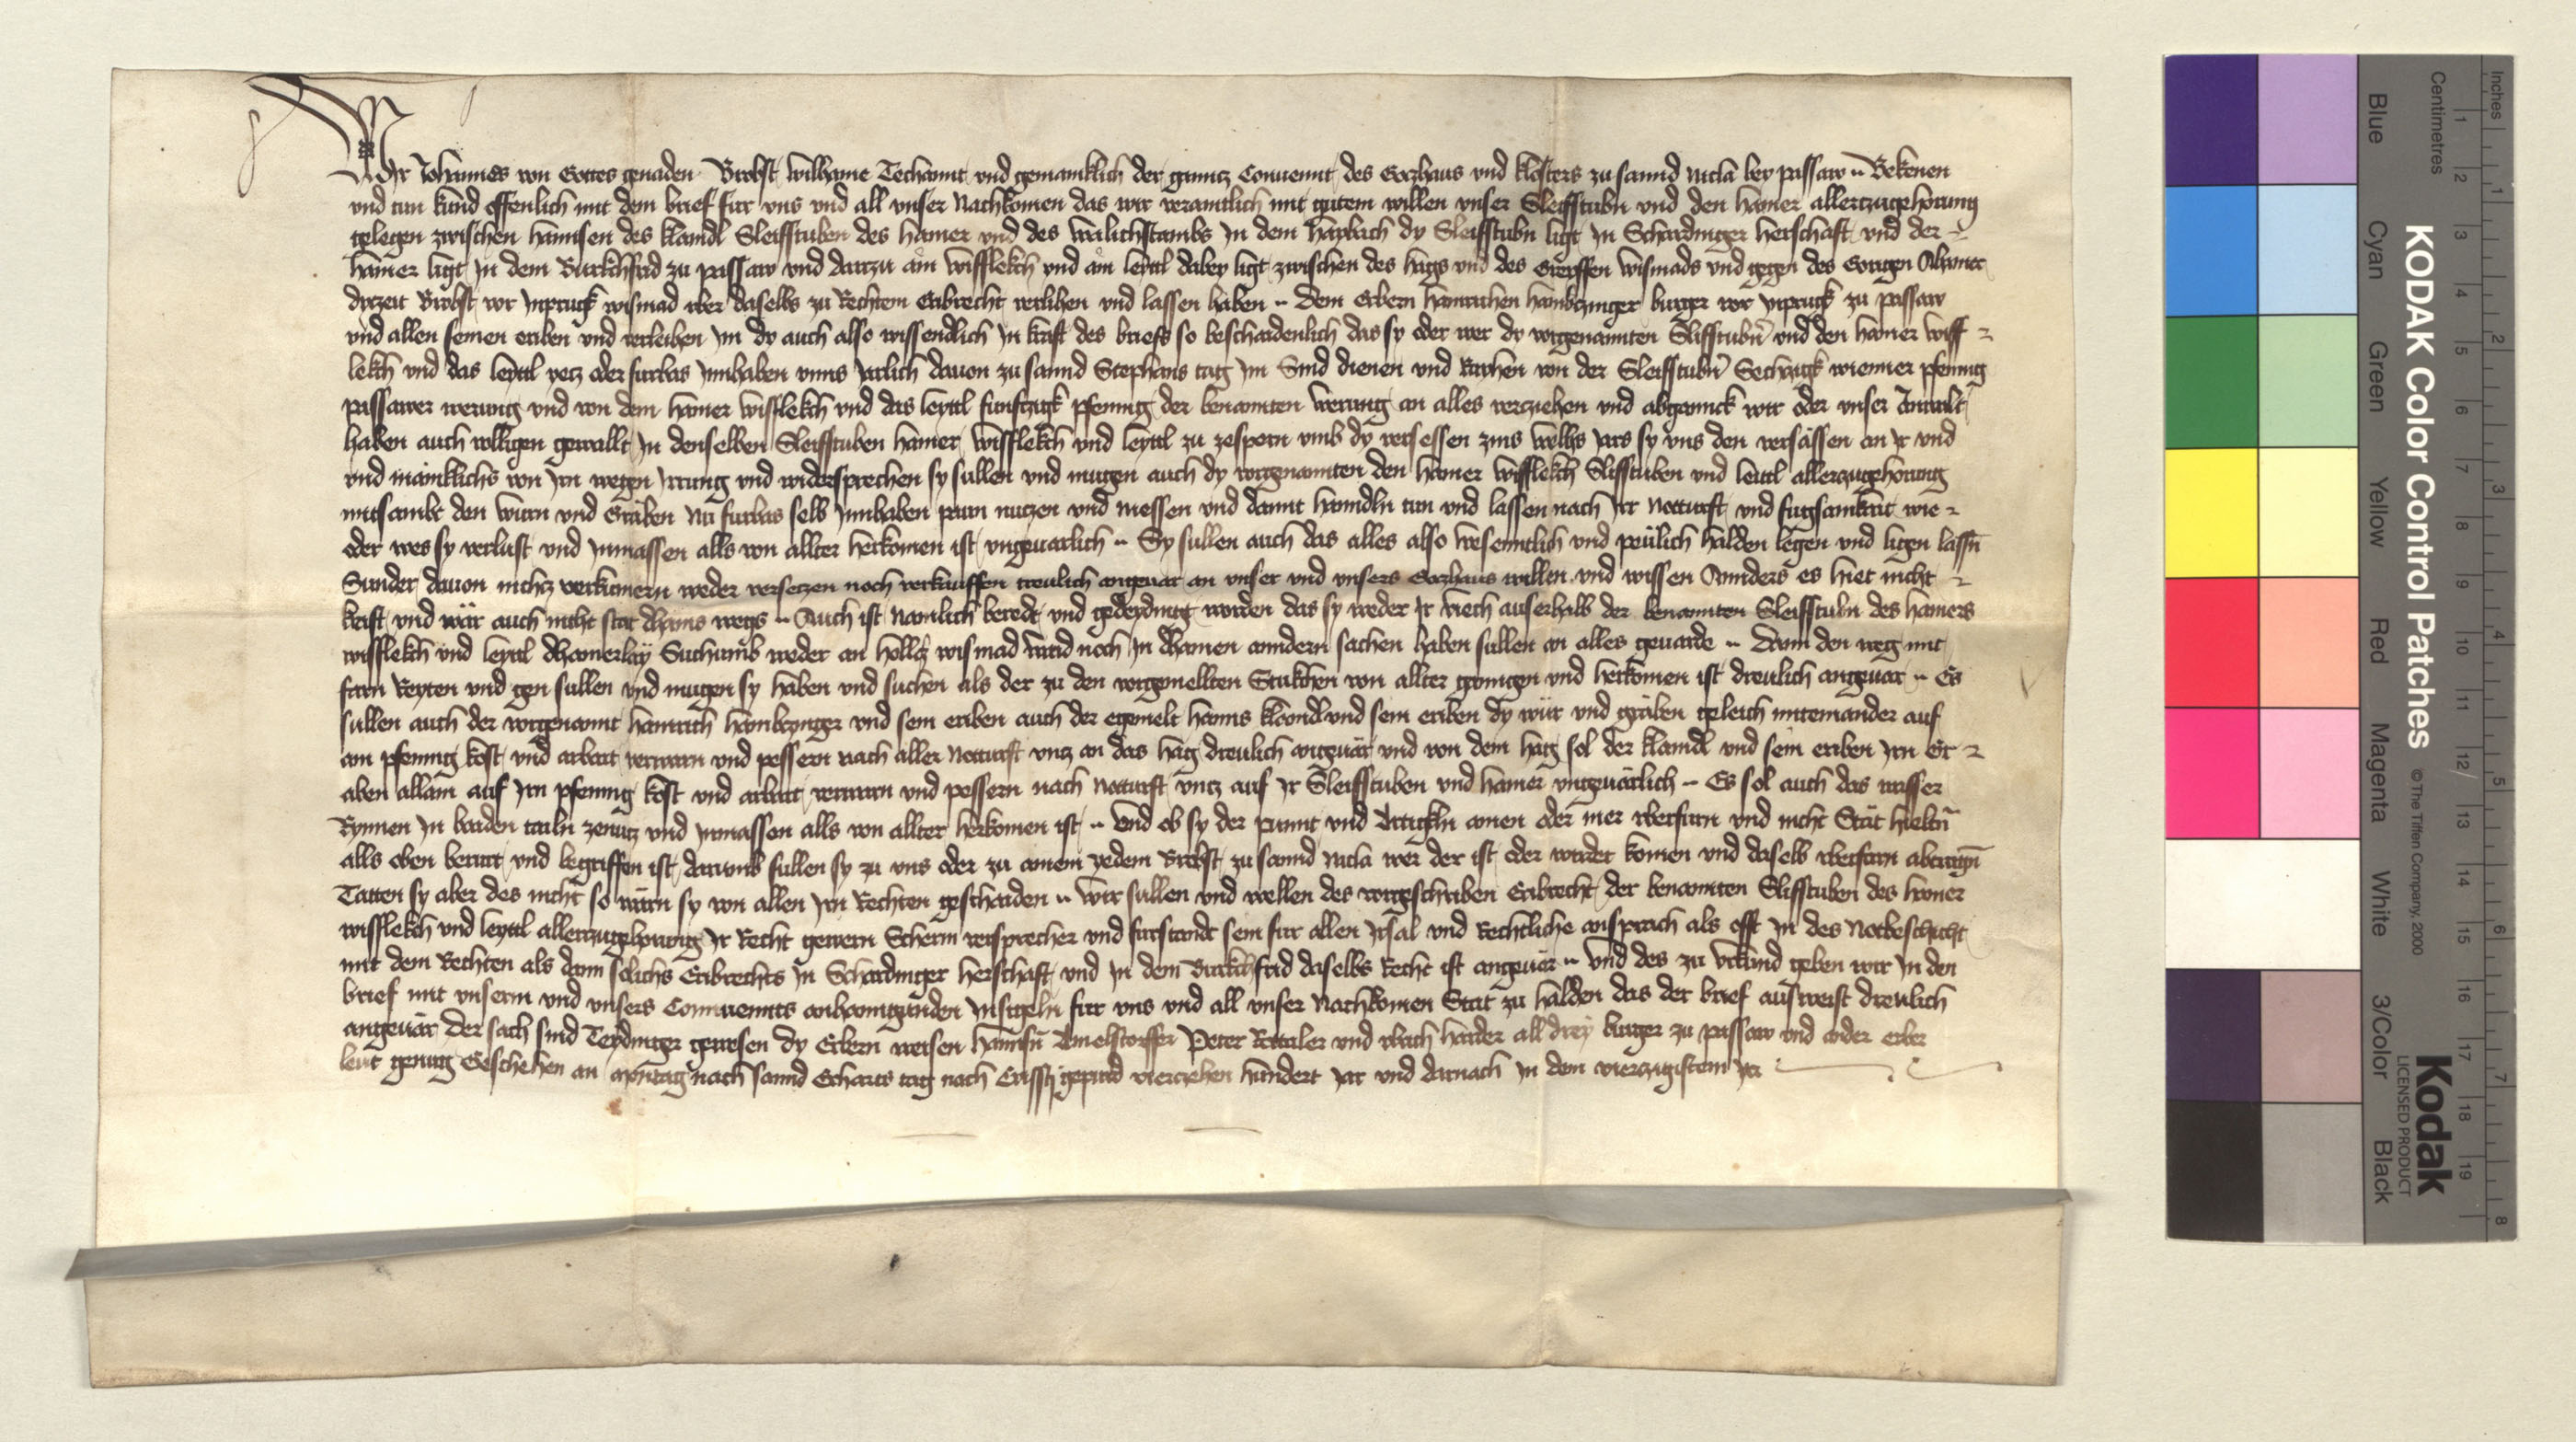 Wir Johannes von Gottes genaden Brobst Wilhame Techannt und gemainklich der gannz Conuennt des Gotzhaus und klosters zu sannd Nicla bey passaw Bekenen
und tun kund offenlich mit dem brief fur uns und all unser Nachkomen das wir veraintlich mit gutem willen unser Sleifstubn und den hamer allerzugehorung
gelegen zwischen hannsen des klaindl Sleifstuben des hamer und des in dem haybach dy Sleifstubn ligt in Schardinger herschaft und der
hamer ligt in dem Burkchfrid zu passaw und darzu ain wifflekch und ain leyttl dabey ligt zwischen des hags und des wismads und gegen des
dyezeit Brobst vor ynpruk wismad uber daselbs zu Rechtem Eribrecht verlihen und lassen haben dem Erbern hainrichen hambczinger burger vor ynpruk zu passaw
und allen seinen eriben und verleihen im dy auch also wissendlich in kraft des briefs so beschaidenlich das sy oder wer dy vorgenannten Slifstubn und den hamer wiff
lekch und das leyttl yetz oder furbas innhaben unns jarlich dauon zu sannd Stephans tag im Snid dienen und Raichen von der Sleifstubn Sechzigk wienner pfennig
passawer werung und von dem hamer wifflekch und das leyttl funfzigk pfennig der benannten werung an alles verziehen und abganck wir oder unser Anwalt
haben auch volligen gewallt in denselben Sleifstuben hamer wifflekch und leyttl zu zespern umb dy versessen zins welhs jars sy uns den versässen an ir und
und mäinklichs von irn wegen irrung und widersprechen sy sullen und mugen auch dy vorgenannten den hamer wifflekch Slifstuben und leittl allerzugehorung
mitsambt den wurn und Gräben Nu furbas selb innhaben pawn nutzen und niessen und damit hanndln tun und lassen nach irr Notturft und fugsamkait wie
oder wes sy verlust und inmassen alls von allter herkomen ist ungeuarlich Sy sullen auch das alles also wesenntlich und peulich halden legen und ligen lassn
Sunder dauon nichz verkumern weder versetzen noch verkauffen treulich angeuar an unser und unsers Gotzhaus willen und wissen Annders es hiet nicht
kraft und wär auch nicht stat dhains wegs Auch ist Namlich beredt und gedeydingt worden das sy weder ir viech auserhalb der benannten Sleifstubn des hamers
wifflekch und leyttl dhainerlay Suchumb weder an hollcz wismad waid noch in dhainen anndern sachen haben sullen an alles geuarde dann den weg mit
farn Reyten und gen sullen und mugen sy haben und suchen als der zu den vorgemellten Stukchen von allter gangen und herkomen ist dreulich angeuar Es
sullen auch der vorgenannt hainrich hambczinger und sein eriben auch der egemelt hanns klaindl und sein eriben dy wur und gräben geleich miteinander auf
ain pfennig kost und arbait verwarn und pessern nach aller Notturft untz an das hag dreulich angeuär und von dem hag sol der klaindl und sein eriben irn Gr
aben allain auf irn pfennig kost und arbait verwarn und pessern nach Notturft untz auf ir Sleifstuben und hamer ungeuärlich Es sol auch das wasser
Rynnen in baiden tailn zenutz und inmassen alls von allter herkomen ist Und ob sy der punnt und Artigkln ainen oder mer uberfurn und nicht Stät hieltn
alls oben berurt und begriffen ist darumb sullen sy zu uns oder zu ainem yedem Brobst zu sannd Nicla wer der ist oder wirdet komen und daselb uberfarn abtragn
Tätten sy aber des nicht so wärn sy von allen irn Rechten geschaiden Wir sullen und wellen des vorgeschriben Eribrecht der benannten Slifstuben des hamer
wifflekch und leyttl allerzugehorung ir Recht gewern Scherm versprecher und furstandt sein fur allen irsal und Rechtliche ansprach als offt in des Notbeschicht
mit dem Rechten als dann solichs Eribrechts in Schardinger herschaft und in dem Burkchfrid daselbs Recht ist angeuär und des zu Urkund geben wir in den
brief mit unserm und unsers Connuennts anhanngunden insigeln fur uns und all unser Nachkomen Stät zu halden das der brief ausweist dreulich
angeuär der sach sind Teydinger gewesen dy Erbern weisen Hannsn Peter und ulrich all drey burger zu passaw und ander erber
leut genug Geschehen an Montag nach sannd Erharts tag nach Cristi gepurd vierzehen hundert jar und darnach in dem vierzigistem jar
KODAK Color Control Patches
© The Tiffen Company, 2000
Kodak
LICENSED PRODUCT
Inches
Centimetres
Blue
Cyan
Green
Yellow
Red
Magenta
White
3/Color
Black
1 2 3 4 5 6 7 8
1 2 3 4 5 6 7 8 9 10 11 12 13 14 15 16 17 18 19